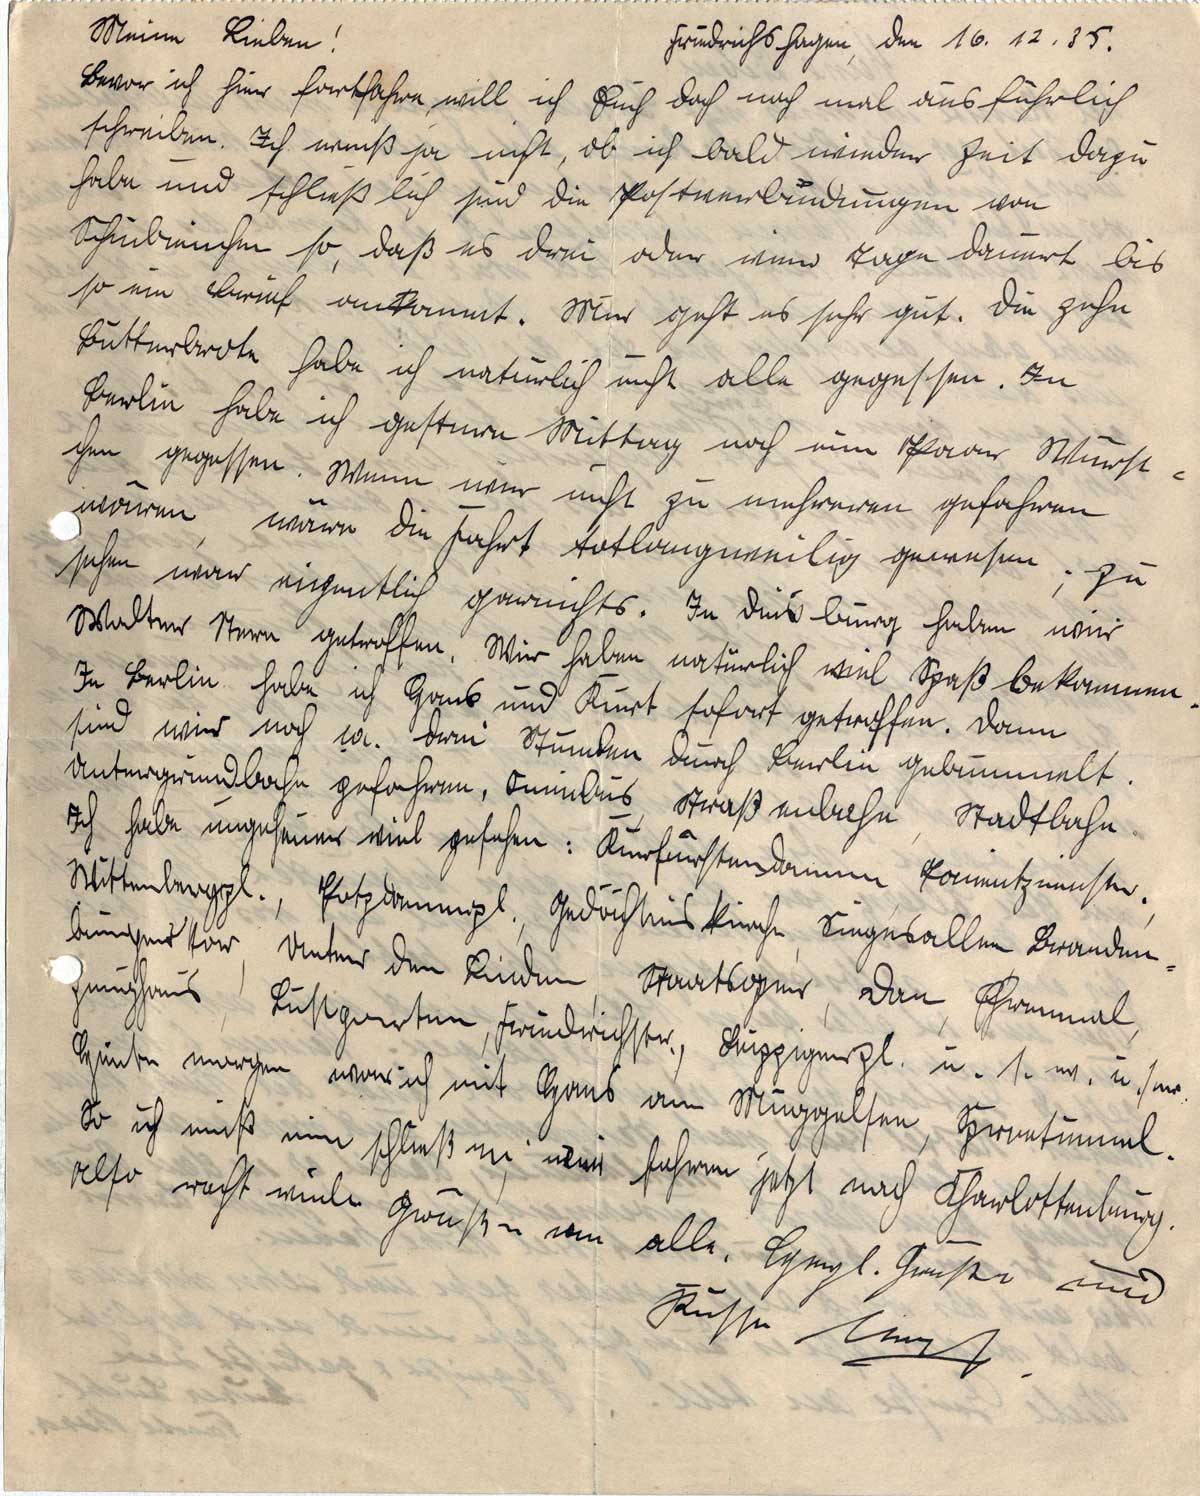 Meine Lieben! Friedrichshagen, den 16.12.35.
Bevor ich hier fortfahre, will ich Euch doch noch mal ausführlich
schreiben. Ich weiß ja nicht, ob ich bald wieder Zeit dazu
habe und schließlich sind die Postverbindungen von
so, daß es drei oder vier Tage dauert bis
so ein Brief ankommt. Mir geht es sehr gut. Die zehn
Butterbrote habe ich natürlich nicht alle gegessen. In
Berlin habe ich gestern Mittag noch ein Paar Würst=
chen gegessen. Wenn wir nicht zu mehreren gefahren
wären, wäre die Fahrt totlangweilig gewesen; zu
sehen war eigentlich garnichts. In Duisburg haben wir
Walter Stern getroffen. Wir haben natürlich viel Spaß bekommen.
In Berlin habe ich Hans und Kurt sofort getroffen. Dann
sind wir noch ca. drei Stunden durch Berlin gebummelt.
Untergrundbahn gefahren, Omnibus, Straßenbahn, Stadtbahn.
Ich habe ungeheuer viel gesehen: Kurfürstendamm,
Wittenbergpl., Potzdammerpl., Gedächtniskirche, Siegesallee Branden=
burgertor, Unter den Linden, Staatsoper, Dom, Ehrenmal,
Zeughaus, Lustgarten, Friedrichstr., u. s. w. u.s.w.
Heute morgen war ich mit Hans am Müggelsee, Spreetunnel.
So ich muß nun schließen, wir fahren jetzt nach Charlottenburg.
Also recht viele Grüße von alle. Herzl. Grüße und
Küsse